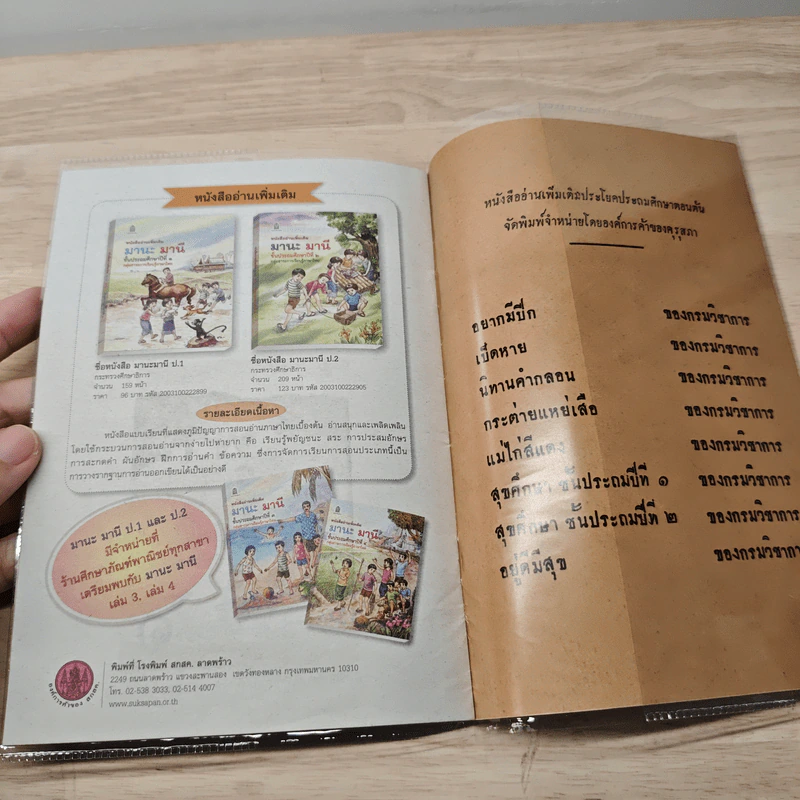 หนังสืออ่านเพิ่มเติม
หนังสืออ่านเพิ่มเติม
มานะ มานี
ชั้นประถมศึกษาปีที่ ๑
หนังสืออ่านเพิ่มเติม
มานะ มานี
ชั้นประถมศึกษาปีที่ ๒
ชื่อหนังสือ มานะมานี ป.1
กระทรวงศึกษาธิการ
จำนวน 159 หน้า
ราคา 96 บาท รหัส 2003100222899
ชื่อหนังสือ มานะมานี ป.2
กระทรวงศึกษาธิการ
จำนวน 209 หน้า
ราคา 123 บาท รหัส 2003100222905
รายละเอียดเนื้อหา
หนังสือแบบเรียนที่แสดงภูมิปัญญาการสอนอ่านภาษาไทยเบื้องต้น อ่านสนุกและเพลิดเพลิน
โดยใช้กระบวนการสอนอ่านจากง่ายไปหายาก คือ เรียนรู้พยัญชนะ สระ การประสมอักษร
การสะกดคำ ผันอักษร ฝึกการอ่านคำ ข้อความ ซึ่งการจัดการเรียนการสอนประเภทนี้เป็น
การวางรากฐานการอ่านออกเขียนได้เป็นอย่างดี
มานะ มานี ป.1 และ ป.2
มีจำหน่ายที่
ร้านศึกษาภัณฑ์พาณิชย์ทุกสาขา
เตรียมพบกับ มานะ มานี
เล่ม 3, เล่ม 4
หนังสืออ่านเพิ่มเติม
มานะ มานี
หนังสืออ่านเพิ่มเติม
มานะ มานี
องค์การค้าของ สกสค.
พิมพ์ที่ โรงพิมพ์ สกสค. ลาดพร้าว
2249 ถนนลาดพร้าว แขวงสะพานสอง เขตวังทองหลาง กรุงเทพมหานคร 10310
โทร. 02-538 3033, 02-514 4007
www.suksapan.or.th
หนังสืออ่านเพิ่มเติมประโยคประถมศึกษาตอนต้น
จัดพิมพ์จำหน่ายโดยองค์การค้าของคุรุสภา
อยากมีปีก ของกรมวิชาการ
เป็ดหาย ของกรมวิชาการ
นิทานคำกลอน ของกรมวิชาการ
กระต่ายแหย่เสือ ของกรมวิชาการ
แม่ไก่สีแดง ของกรมวิชาการ
สุขศึกษา ชั้นประถมปีที่ ๑ ของกรมวิชาการ
สุขศึกษา ชั้นประถมปีที่ ๒ ของกรมวิชาการ
อยู่ดีมีสุข ของกรมวิชาการ